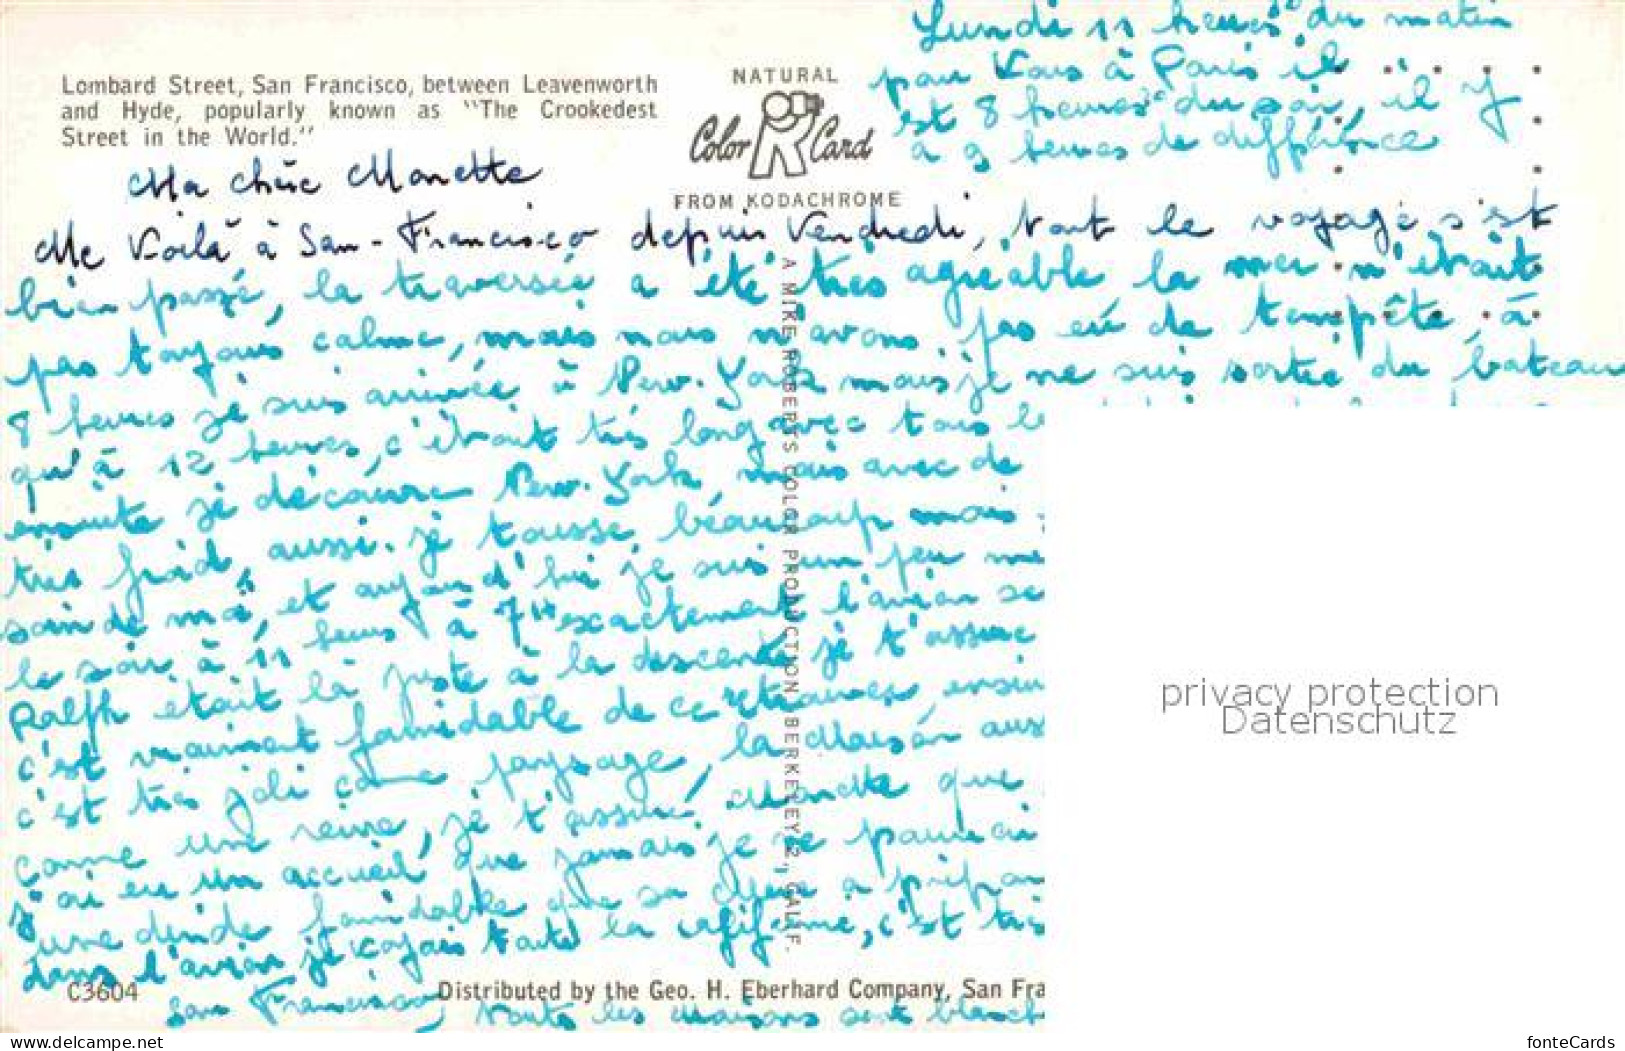 Lundi 11 heures du matin
pour vous à Paris il
est 8 heures du soir, il y
a 9 heures de différence
Lombard Street, San Francisco, between Leavenworth
and Hyde, popularly known as "The Crookedest
Street in the World."
NATURAL
Color Card
FROM KODACHROME
Ma chère Manette
Me Voilà à San-Francisco depuis Vendredi, tout le voyage s'est
bien passé, la traversée a été très agréable la mer n'était
pas toujours calme, mais nous n'avons pas eu de tempête, à
8 heures je suis arrivée à New-York mais je ne suis sortie du bateau
qu'à 12 heures, c'était très long avec tous le
ensuite je découvre New-York mais avec de
très froid, aussi je tousse beaucoup mais
soin de moi, et aujourd'hui je suis un peu
le soir à 11 heures à 7 exactement l'avion
Ralph était là juste à la descente je t'assure
c'est vraiment formidable de ce retrouver,
c'est très joli comme paysage, la Maison
comme une reine, je t'assure Manette que
j'ai eu un accueil que jamais je ne
une dinde formidable que sa a
dans l'avion je voyais toute la californie, c'est
San Francisco, toutes les maisons sont
A MIKE ROBERTS COLOR PRODUCTION, BERKELEY 2, CALIF.
C3604
Distributed by the Geo. H. Eberhard Company, San Fra
privacy protection
Datenschutz
www.delcampe.net
fonteCards